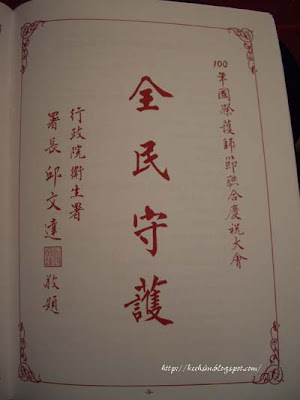 100年國際護師節聯合慶祝大會
全民守護
行政院衛生署
署長 邱文達 敬題
http://kechün.blogspot.com/